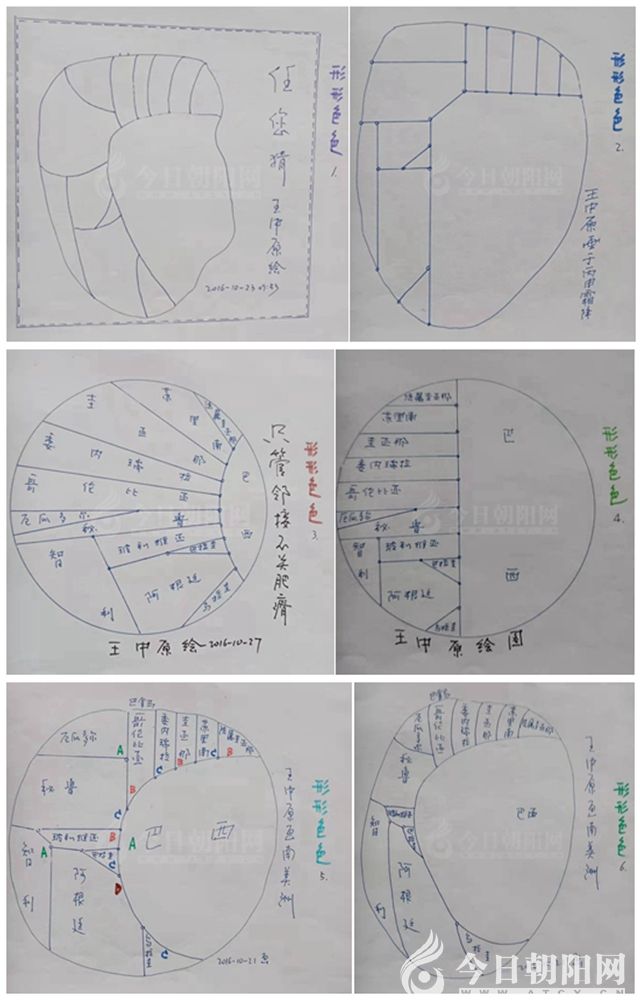 任您猜
王中原绘
2016-10-23
形形色色
1.
今日朝阳网
形形色色
2.
王中原
丙申霜降
今日朝阳网
圭亚那
苏里南
法属圭亚那
委内瑞拉
哥伦比亚
厄瓜多尔
秘鲁
巴西
智利
玻利维亚
巴拉圭
阿根廷
乌拉圭
只管邻接不关肥瘠
形形色色
3.
王中原绘-2016-10-27
法属圭亚那
苏里南
圭亚那
委内瑞拉
哥伦比亚
秘鲁
智利
玻利维亚
巴拉圭
阿根廷
乌拉圭
巴西
形形色色
4.
王中原绘图
巴拿马
厄瓜多尔
哥伦比亚
委内瑞拉
圭亚那
苏里南
法属圭亚那
A
B
C
B
C
B
秘鲁
C
玻利维亚
B
A
巴西
智利
A
巴拉圭
C
D
阿根廷
乌拉圭
C
王中原画南美洲
形形色色
5.
2016-10-21
巴拿马
厄瓜多尔
哥伦比亚
委内瑞拉
圭亚那
苏里南
法属圭亚那
秘鲁
巴西
智利
阿根廷
乌拉圭
王中原画南美洲
形形色色
6.
今日朝阳网